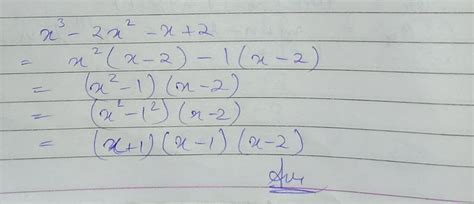 x³ - 2x² - x + 2
= x² (x - 2) - 1 (x - 2)
= (x² - 1) (x - 2)
= (x² - 1²) (x - 2)
= (x + 1) (x - 1) (x - 2)
Ans